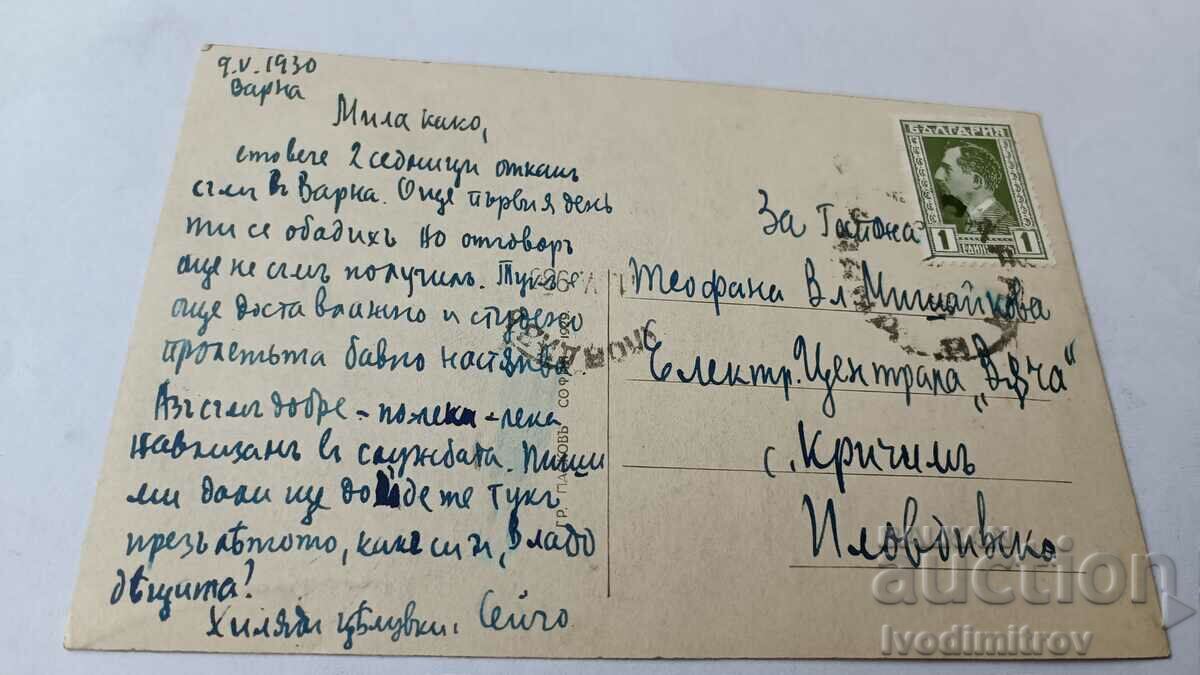 9.V.1930
Варна
Мила како,
ето вече 2 седмици откакъ
съмъ въ Варна. Още първия день
ти се обадихъ но отговоръ
още не съмъ получилъ. Тукъ е
още доста влажно и студено
пролетьта бавно настѫпва.
Азъ съмъ добре - полека - лека
навлизамъ въ службата. Пиши
ми дали ще дойдете тукъ
презъ лѣтото, какъ си ти, Владо
дѣцата?
Хиляди цѣлувки. Сейчо
ГР. ПАСКОВЪ СОФИЯ 1929
БЪЛГАРИЯ
1 1
За Госпожа
Теофана Вл. Мишайкова
Електр. Централа „Вѫча“
с. Кричимъ
Пловдивско
auction
Ivodimitrov